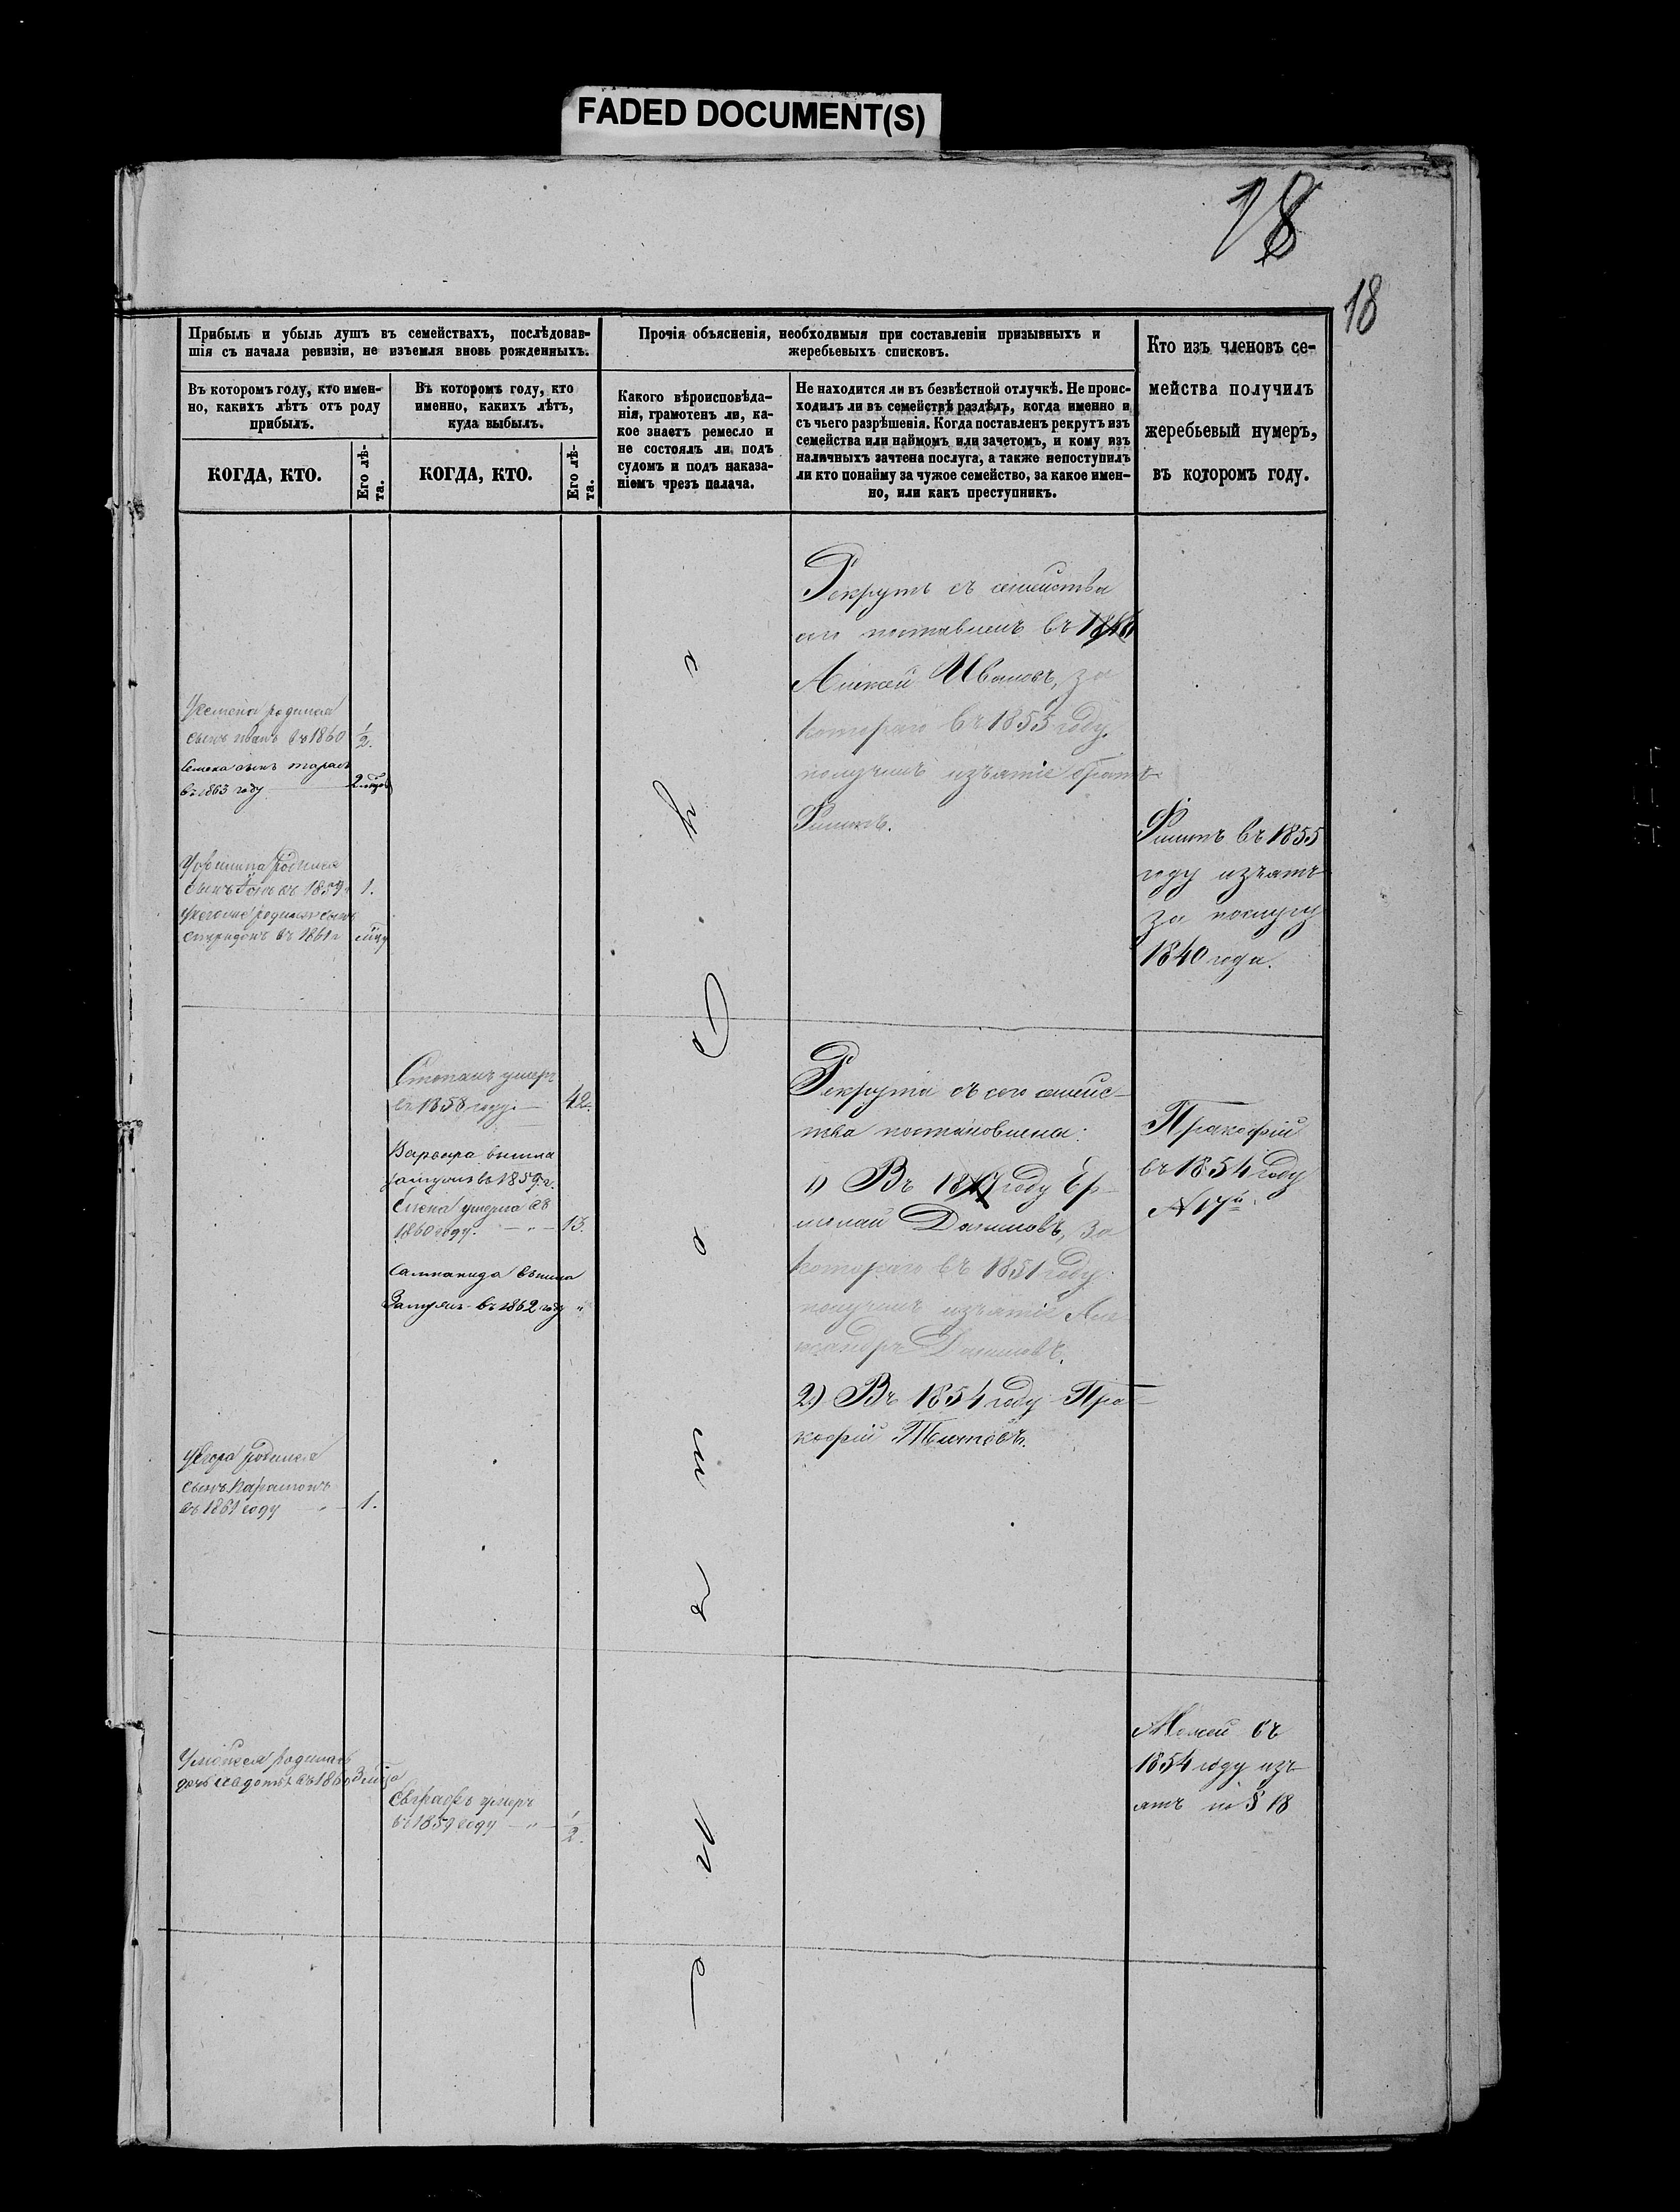 FADED DOCUMENT(S)
18
18
Прибыль и убыль душъ въ семействахъ, послѣдовав-
шія съ начала ревизіи, не изъемля вновь рожденныхъ.
Въ которомъ году, кто имен-
но, какихъ лѣтъ отъ роду
прибылъ.
КОГДА, КТО.
Его лѣ-
та.
Въ которомъ году, кто
именно, какихъ лѣтъ,
куда выбылъ.
КОГДА, КТО.
Его лѣ-
та.
Прочія объясненія, необходимыя при составленіи призывныхъ и
жеребьевыхъ списковъ.
Какого вѣроисповѣда-
нія, грамотенъ ли, ка-
кое знаетъ ремесло и
не состоялъ ли подъ
судомъ и подъ наказа-
ніемъ чрезъ палача.
Не находится ли въ безвѣстной отлучкѣ. Не проис-
ходилъ ли въ семействѣ раздѣлъ, когда именно и
съ чьего разрѣшенія. Когда поставленъ рекрутъ изъ
семейства или наймомъ или зачетомъ, и кому изъ
наличныхъ зачтена послуга, а также непоступилъ
ли кто понайму за чужое семейство, за какое имен-
но, или какъ преступникъ.
Кто изъ членовъ се-
мейства получилъ
жеребьевый нумеръ,
въ которомъ году.
родился
сынъ иванъ въ 1860 1/2.
сынъ тарасъ
въ 1863 году
родился
сынъ въ 1859 1.
родился сынъ
спиридонъ въ 1861 г
Рекрутъ съ семейства
сего поставленъ въ
Алексей Ивановъ, за
котораго въ 1855 году
получилъ изъятіе братъ
Филипъ.
Филипъ въ 1855
году изъятъ
за послугу
1840 года.
Степанъ умеръ
въ 1858 году 42.
Варвара вышла
замужъ въ 1859 г.
Елена умерла въ
1860 году. 13.
вышла
Замужъ въ 1862 году "
Рекрута съ сего семейс-
тва постановлена:
1) Въ году Ер-
молай Даниловъ, за
котораго въ 1851 году
получилъ изъятіе Алек-
сандръ Даниловъ.
2) Въ 1854 году Пра-
кофій Титовъ.
Пракофій
въ 1854 году
№ 17й.
Уегора родился
сынъ Парамонъ
въ 1861 году 1.
Умойсея родилась
дочь федотья въ 1860
Евграфъ умеръ
въ 1859 году 1/2.
Мойсей въ
1854 году изъ-
ятъ по § 18